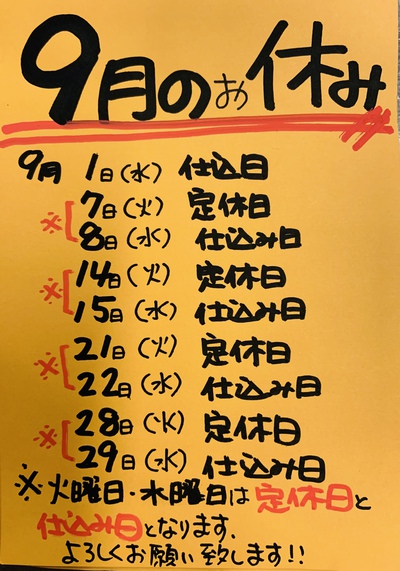 9月のお休み
9月 1日(水) 仕込日
※[7日(火) 定休日
8日(水) 仕込み日
※[14日(火) 定休日
15日(水) 仕込み日
※[21日(火) 定休日
22日(水) 仕込み日
※[28日(火) 定休日
29日(水) 仕込み日
※火曜日・水曜日は定休日と
仕込み日となります。
よろしくお願い致します!!